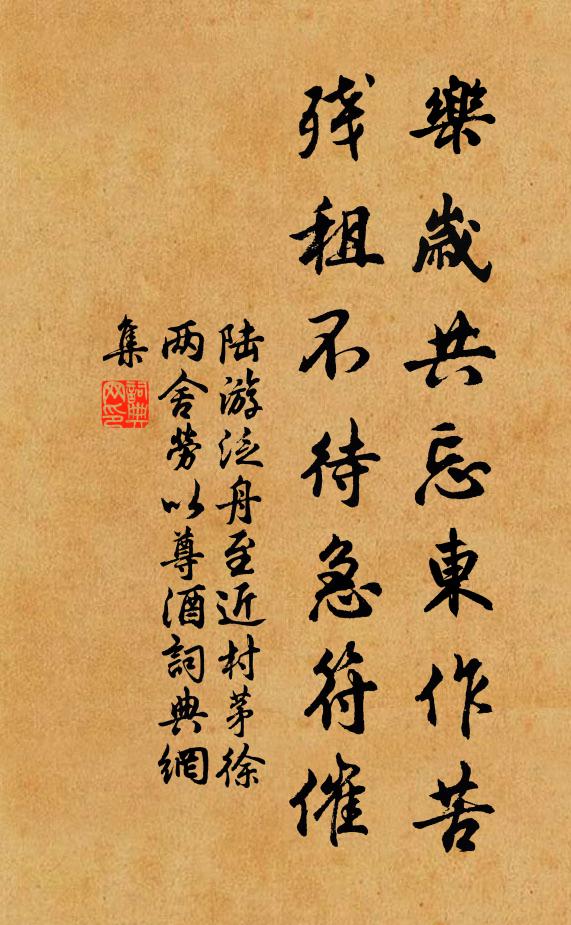 樂歲共忘東作苦
残租不待急符催
陆游泛舟至近村茅徐
两舍勞以尊酒詞典網
集
詞典
网印